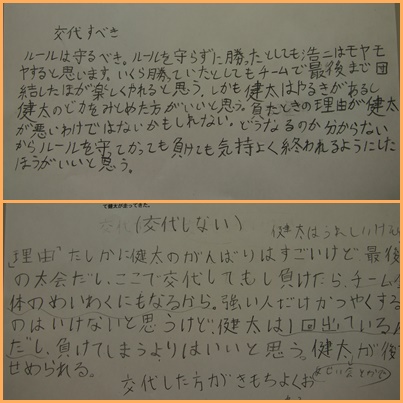 交代すべき
ルールは守るべき。ルールを守らずに勝ったとしても浩二はモヤモ
ヤすると思います。いくら勝っていたとしてもチームで最後まで団
結したほが楽しくやれると思う。しかも健太はやるきがあるし
健太のどカをみとめた方がいいと思う。負たときの理由が健太
が悪いわけではないかもしれない。どうなるのか分からない
からルールを守てかっても負けても気持よく終われるようにした
ほうがいいと思う。
て健太が走ってきた。
交代(交代しない)
健太はうれしいけど
「理由」たしかに健太のがんばりはすごいけど最後
の大会だし、ここで交代してもし負けたら、チーム全
体のめいわくにもなるから。強い人だけかつやくする
のはいけないと思うけど、健太は1回出ている
だし、負けてしまうよりはいいと思う。健太が後
せめられる。
交代した方がきもちよくお